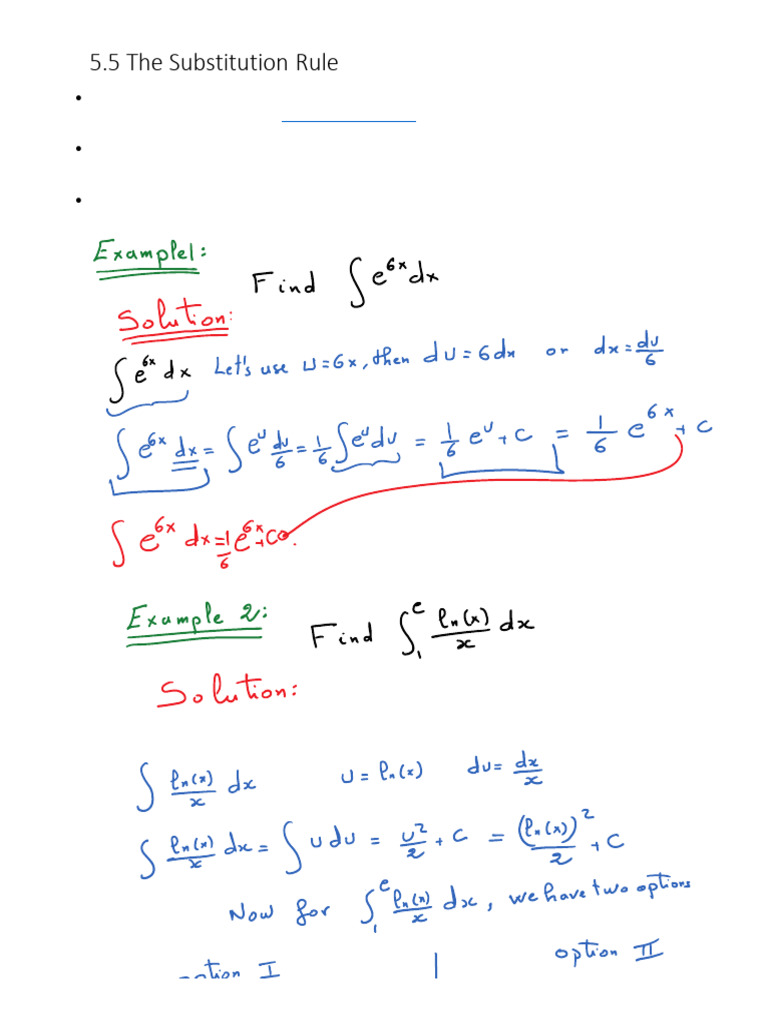 5.5 The Substitution Rule
•
•
•
Example1:
Find ∫e^{6x}dx
Solution:
∫e^{6x}dx Let's use u=6x, then du=6dx or dx=du/6
∫e^{6x}dx = ∫e^u du/6 = 1/6 ∫e^u du = 1/6 e^u + C = 1/6 e^{6x} + C
∫e^{6x}dx = 1/6 e^{6x} + C.
Example 2:
Find ∫_1^e ln(x)/x dx
Solution:
∫ ln(x)/x dx u = ln(x) du = dx/x
∫ ln(x)/x dx = ∫u du = u²/2 + C = (ln(x))²/2 + C
Now for ∫_1^e ln(x)/x dx, we have two options
option I | option II